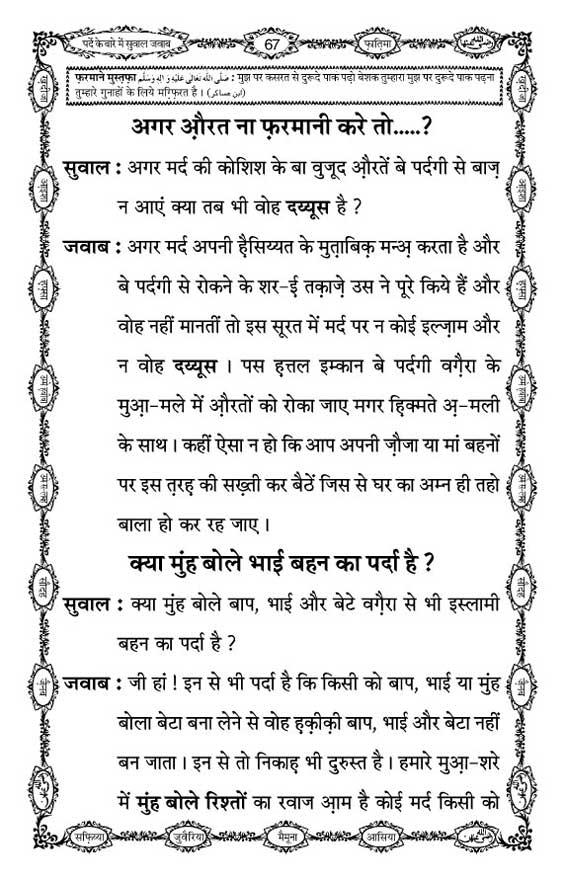 पर्दे के बारे में सुवाल जवाब
67
फ़ातिमा
फ़रमाने मुस्तफ़ा صَلَّى اللهُ تَعَالٰى عَلَيْهِ وَاٰلِهٖ وَسَلَّم : मुझ पर कसरत से दुरूदे पाक पढ़ो बेशक तुम्हारा मुझ पर दुरूदे पाक पढ़ना
तुम्हारे गुनाहों के लिये मग़्फ़िरत है । (ابن عساكر)
अगर औ़रत ना फ़रमानी करे तो.....?
सुवाल : अगर मर्द की कोशिश के बा वुजूद औ़रतें बे पर्दगी से बाज़
न आएं क्या तब भी वोह दय्यूस है ?
जवाब : अगर मर्द अपनी ह़ैसिय्यत के मुत़ाबिक़ मन्अ़ करता है और
बे पर्दगी से रोकने के शर-ई़ तक़ाज़े उस ने पूरे किये हैं और
वोह नहीं मानतीं तो इस सूरत में मर्द पर न कोई इल्ज़ाम और
न वोह दय्यूस । पस ह़त्तल इम्कान बे पर्दगी वग़ैरा के
मुआ़-मले में औ़रतों को रोका जाए मगर ह़िक्मते अ़-मली
के साथ । कहीं ऐसा न हो कि आप अपनी ज़ौजा या मां बहनों
पर इस त़रह़ की सख़्ती कर बैठें जिस से घर का अम्न ही तहो
बाला हो कर रह जाए ।
क्या मुंह बोले भाई बहन का पर्दा है ?
सुवाल : क्या मुंह बोले बाप, भाई और बेटे वग़ैरा से भी इस्लामी
बहन का पर्दा है ?
जवाब : जी हां ! इन से भी पर्दा है कि किसी को बाप, भाई या मुंह
बोला बेटा बना लेने से वोह ह़क़ीक़ी बाप, भाई और बेटा नहीं
बन जाता । इन से तो निकाह़ भी दुरुस्त है । हमारे मुआ़-शरे
में मुंह बोले रिश्तों का रवाज आ़म है कोई मर्द किसी को
सफ़िय्या
जुवैरिया
मैमूना
आसिया